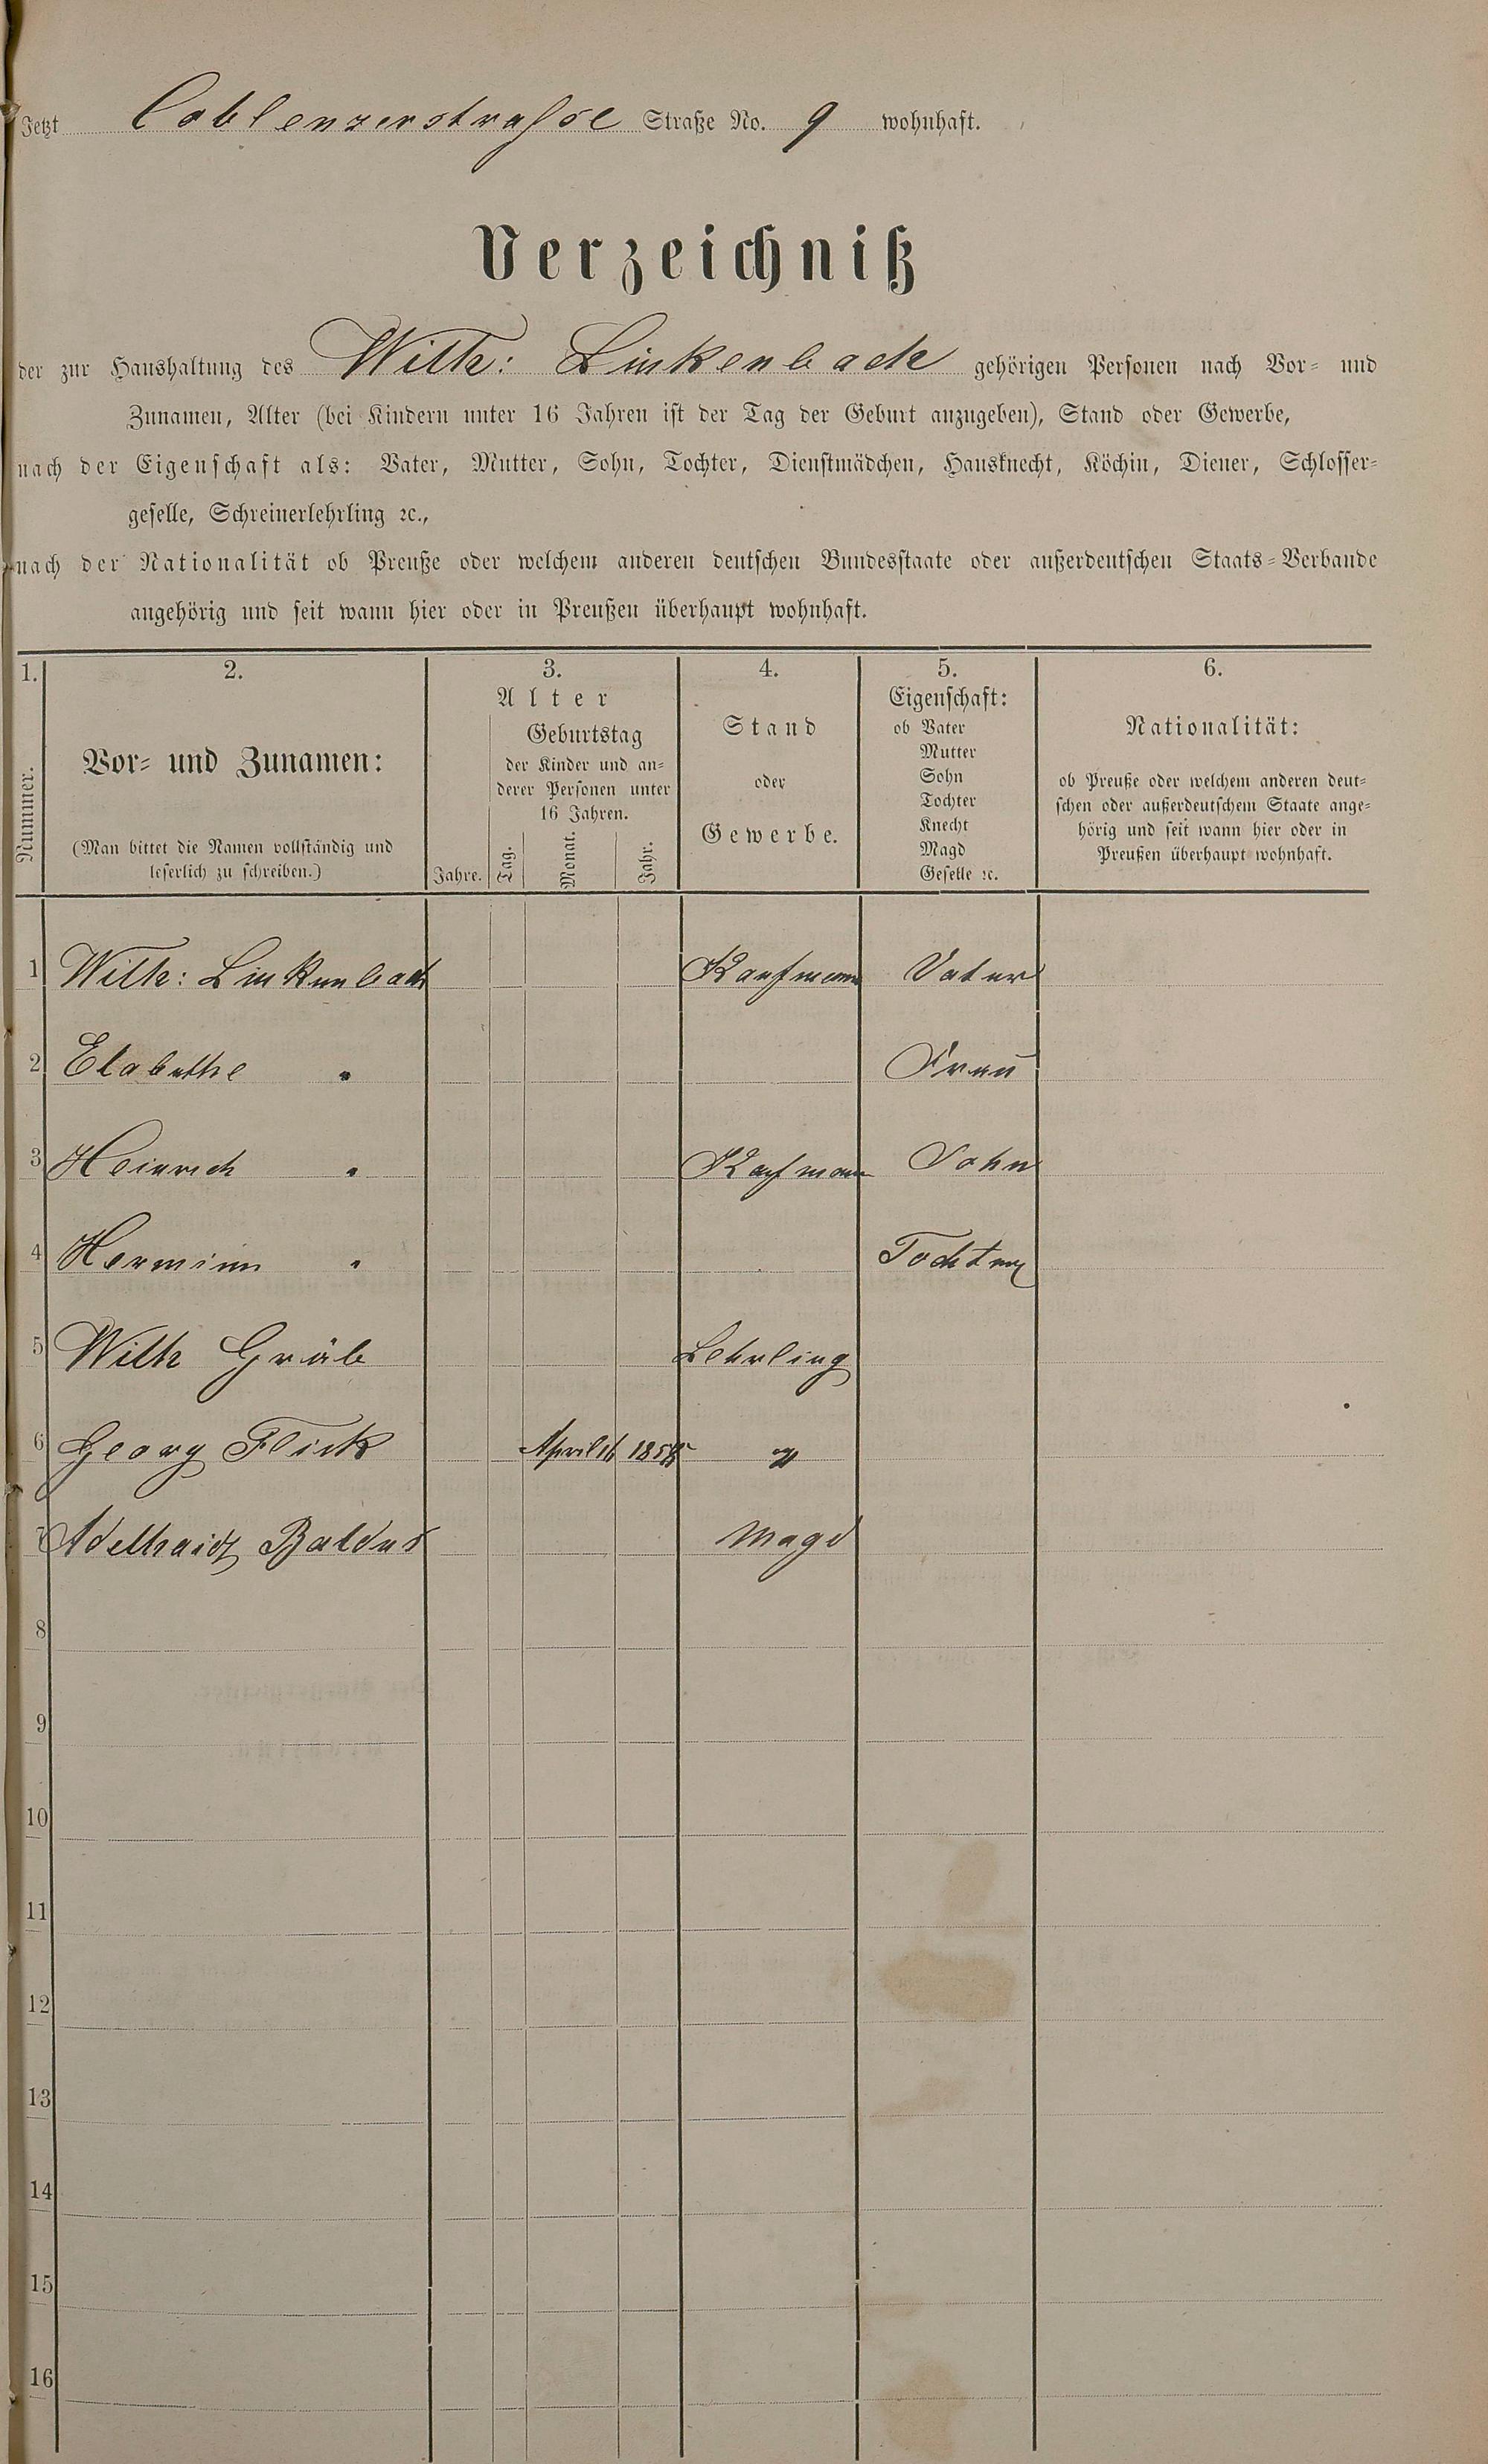 Jetzt Coblenzerstraße Straße No. 9 wohnhaft.
Verzeichniß
der zur Haushaltung des Wilh: Linkenbach gehörigen Personen nach Vor- und
Zunamen, Alter (bei Kindern unter 16 Jahren ist der Tag der Geburt anzugeben), Stand oder Gewerbe,
nach der Eigenschaft als: Vater, Mutter, Sohn, Tochter, Dienstmädchen, Hausknecht, Köchin, Diener, Schlosser-
geselle, Schreinerlehrling ꝛc.,
nach der Nationalität ob Preuße oder welchem anderen deutschen Bundesstaate oder außerdeutschen Staats-Verbande
angehörig und seit wann hier oder in Preußen überhaupt wohnhaft.
1.
Nummer.
2.
Vor- und Zunamen:
(Man bittet die Namen vollständig und
leserlich zu schreiben.)
3.
Alter
Jahre.
Geburtstag
der Kinder und an-
derer Personen unter
16 Jahren.
Tag.
Monat.
Jahr.
4.
Stand
oder
Gewerbe.
5.
Eigenschaft:
ob Vater
Mutter
Sohn
Tochter
Knecht
Magd
Geselle ꝛc.
6.
Nationalität:
ob Preuße oder welchem anderen deut-
schen oder außerdeutschem Staate ange-
hörig und seit wann hier oder in
Preußen überhaupt wohnhaft.
1 Wilh: Linkenbach Kaufmann Vater
2 Elabethe " Frau
3 Heinrich " Kaufmann Sohn
4 Hermine " Tochter
5 Wilh Gräb Lehrling
6 Georg Flick April 16 "
7 Adelhaidt Baldus Magd
8
9
10
11
12
13
14
15
16